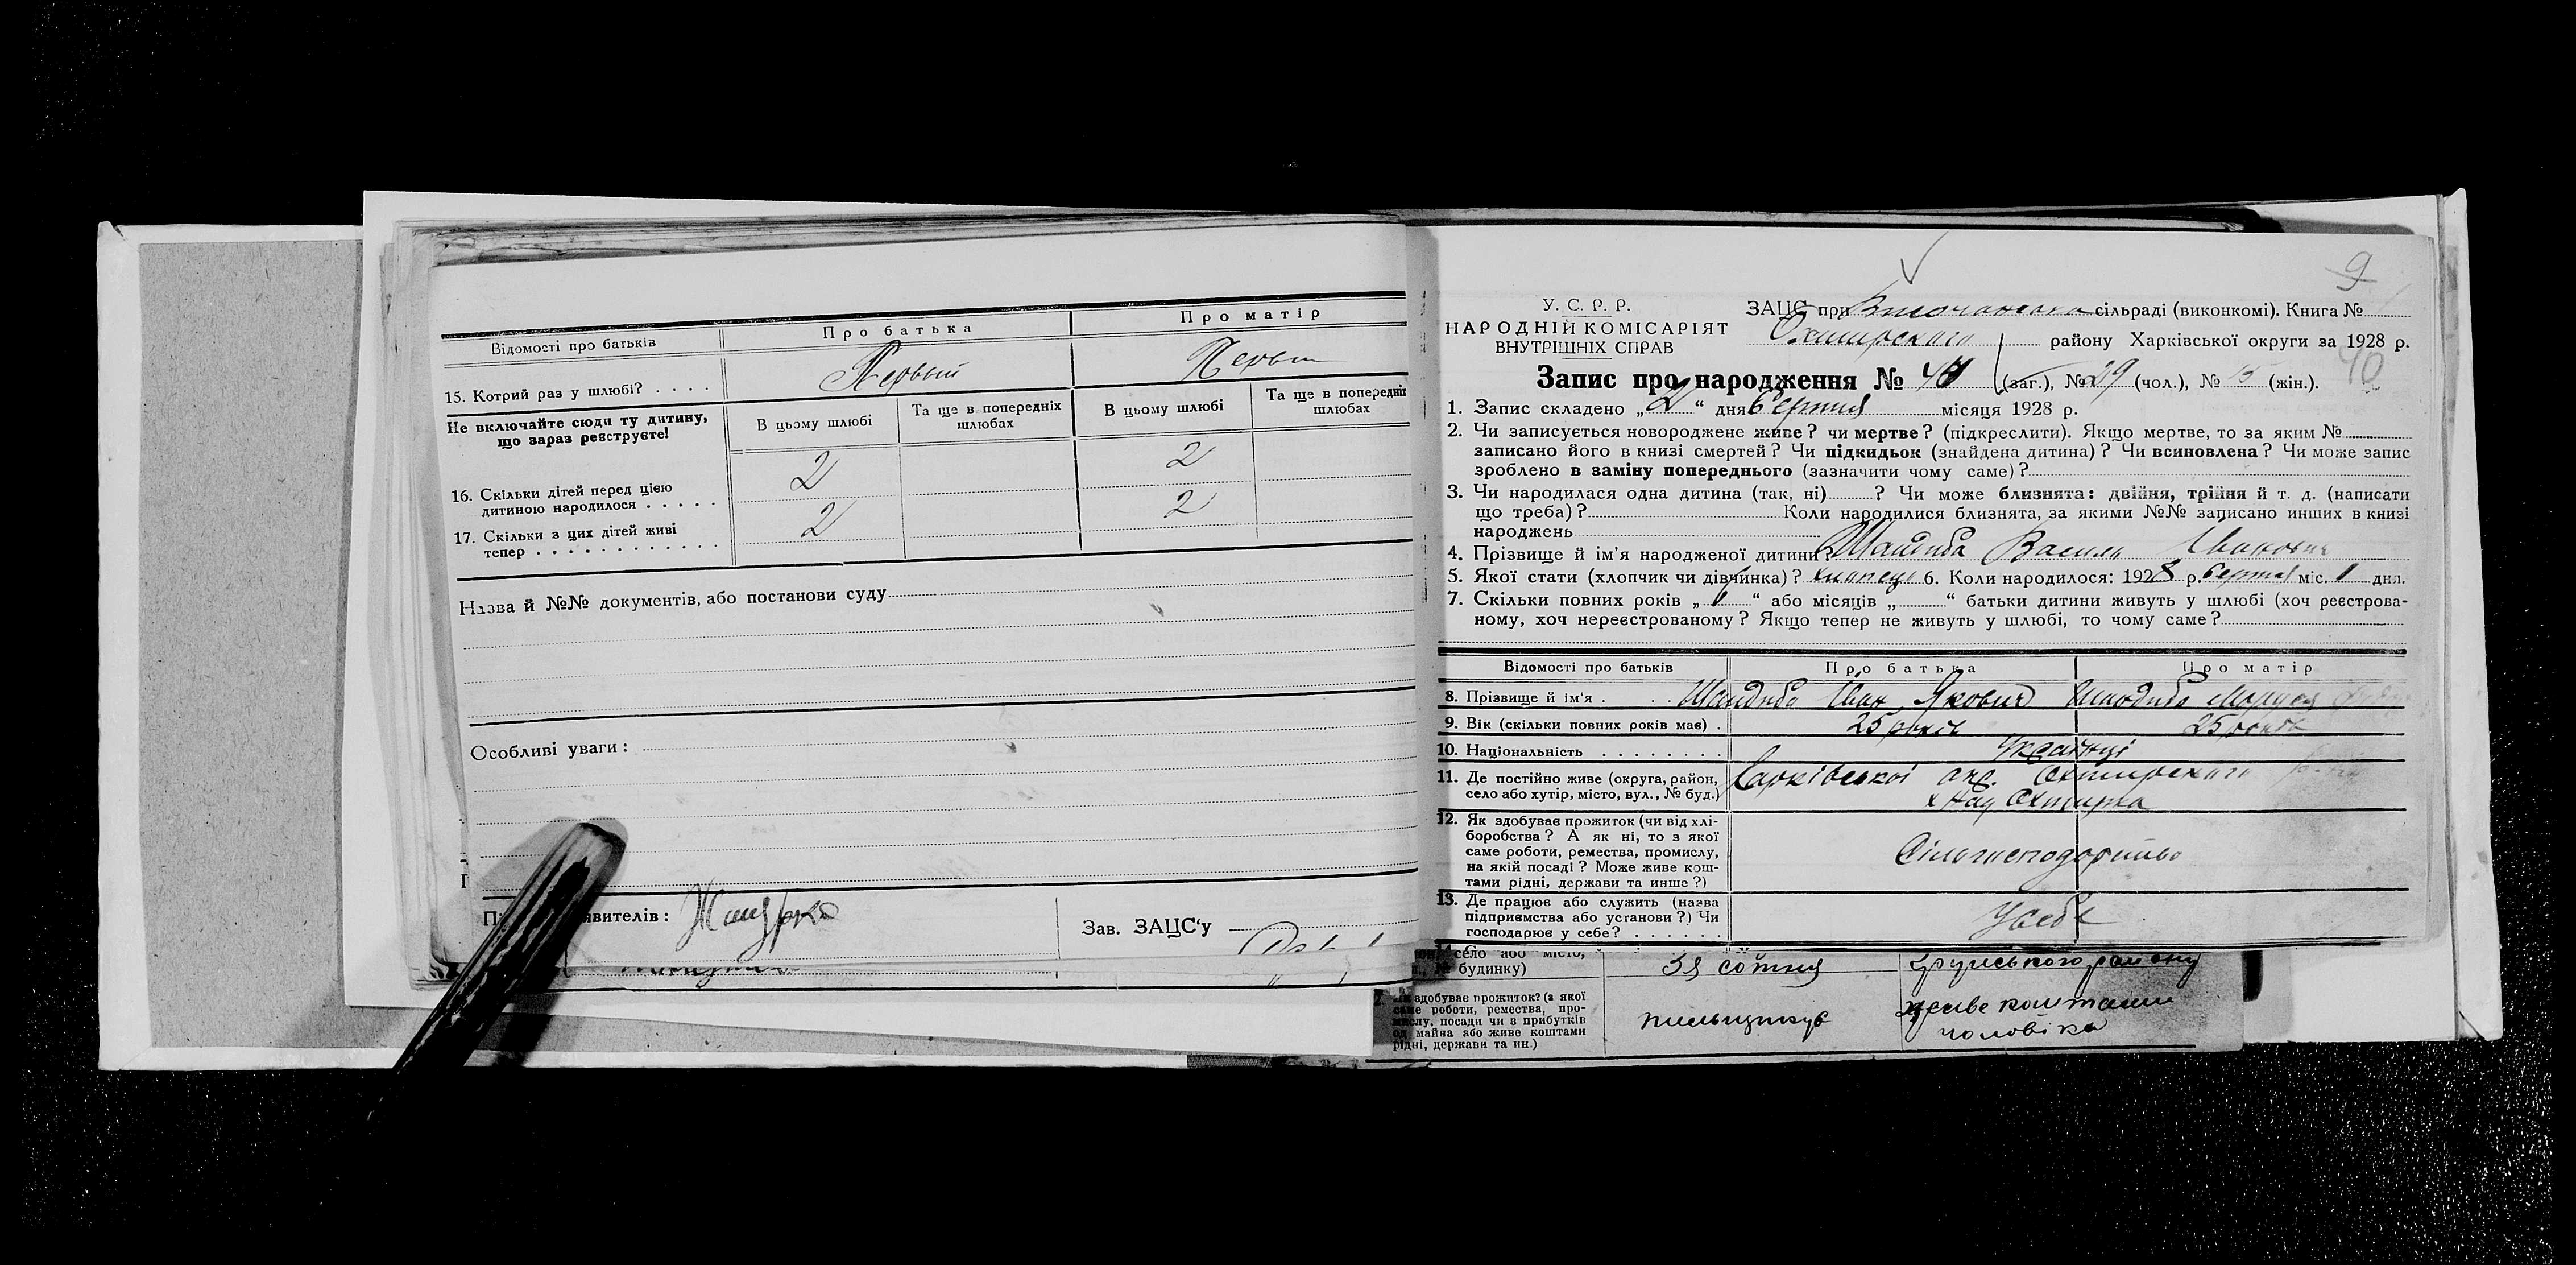 Відомості про батьків
Про батька
Про матір
15. Котрий раз у шлюбі? . . . .
Первый
Первы
Не включайте сюди ту дитину,
що зараз реєструєте!
В цьому шлюбі
Та ще в попередніх
шлюбах
В цьому шлюбі
Та ще в попередніх
шлюбах
16. Скільки дітей перед цією
дитиною народилося . . . . .
2
2
17. Скільки з цих дітей живі
тепер . . . . . . . . . . . .
2
2
Назва й №№ документів, або постанови суду
Особливі уваги:
явителів:
Зав. ЗАЦС'у
9
У. С. Р. Р.
НАРОДНІЙ КОМІСАРІЯТ
ВНУТРІШНІХ СПРАВ
ЗАЦС при сільраді (виконкомі). Книга №
Охтирского району Харківської округи за 1928 р.
40
Запис про народження № (заг.), № 29 (чол.), № 15 (жін.).
1. Запис складено „ 2 “ дня серпня місяця 1928 р.
2. Чи записується новороджене живе? чи мертве? (підкреслити). Якщо мертве, то за яким №
записано його в книзі смертей? Чи підкидьок (знайдена дитина)? Чи всиновлена? Чи може запис
зроблено в заміну попереднього (зазначити чому саме)?
3. Чи народилася одна дитина (так, ні) ? Чи може близнята: двійня, трійня й т. д. (написати
що треба)? Коли народилися близнята, за якими №№ записано инших в книзі
народжень
4. Прізвище й ім'я народженої дитини? Шандиба Василь Іванович
5. Якої стати (хлопчик чи дівчинка)? хлопець 6. Коли народилося: 1928 р. серпня міс. 1 дня.
7. Скільки повних років „ “ або місяців „ “ батьки дитини живуть у шлюбі (хоч реєстрова-
ному, хоч нереєстрованому? Якщо тепер не живуть у шлюбі, то чому саме?
Відомості про батьків
Про батька
Про матір
8. Прізвище й ім'я . . . Шандиба Іван Якович Шандиба Маруся
9. Вік (скільки повних років має) . 25 років 25 років
10. Національність . . . . . . . . Українці
11. Де постійно живе (округа, район,
село або хутір, місто, вул., № буд.)
Харківської окр. Охтирского
х Над Охтирка
12. Як здобуває прожиток (чи від хлі-
боробства? А як ні, то з якої
саме роботи, ремества, промислу,
на якій посаді? Може живе кош-
тами рідні, держави та инше?)
Сільгосподарство
13. Де працює або служить (назва
підприємства або установи?) Чи
господарює у себе? . . . . . .
У себе
село або місто,
будинку)
сотня
району
здобуває прожиток? (з якої
саме роботи, ремества, про-
мислу, посади чи з прибутків
од майна або живе коштами
рідні, держави та ин.)
живе коштами
чоловіка